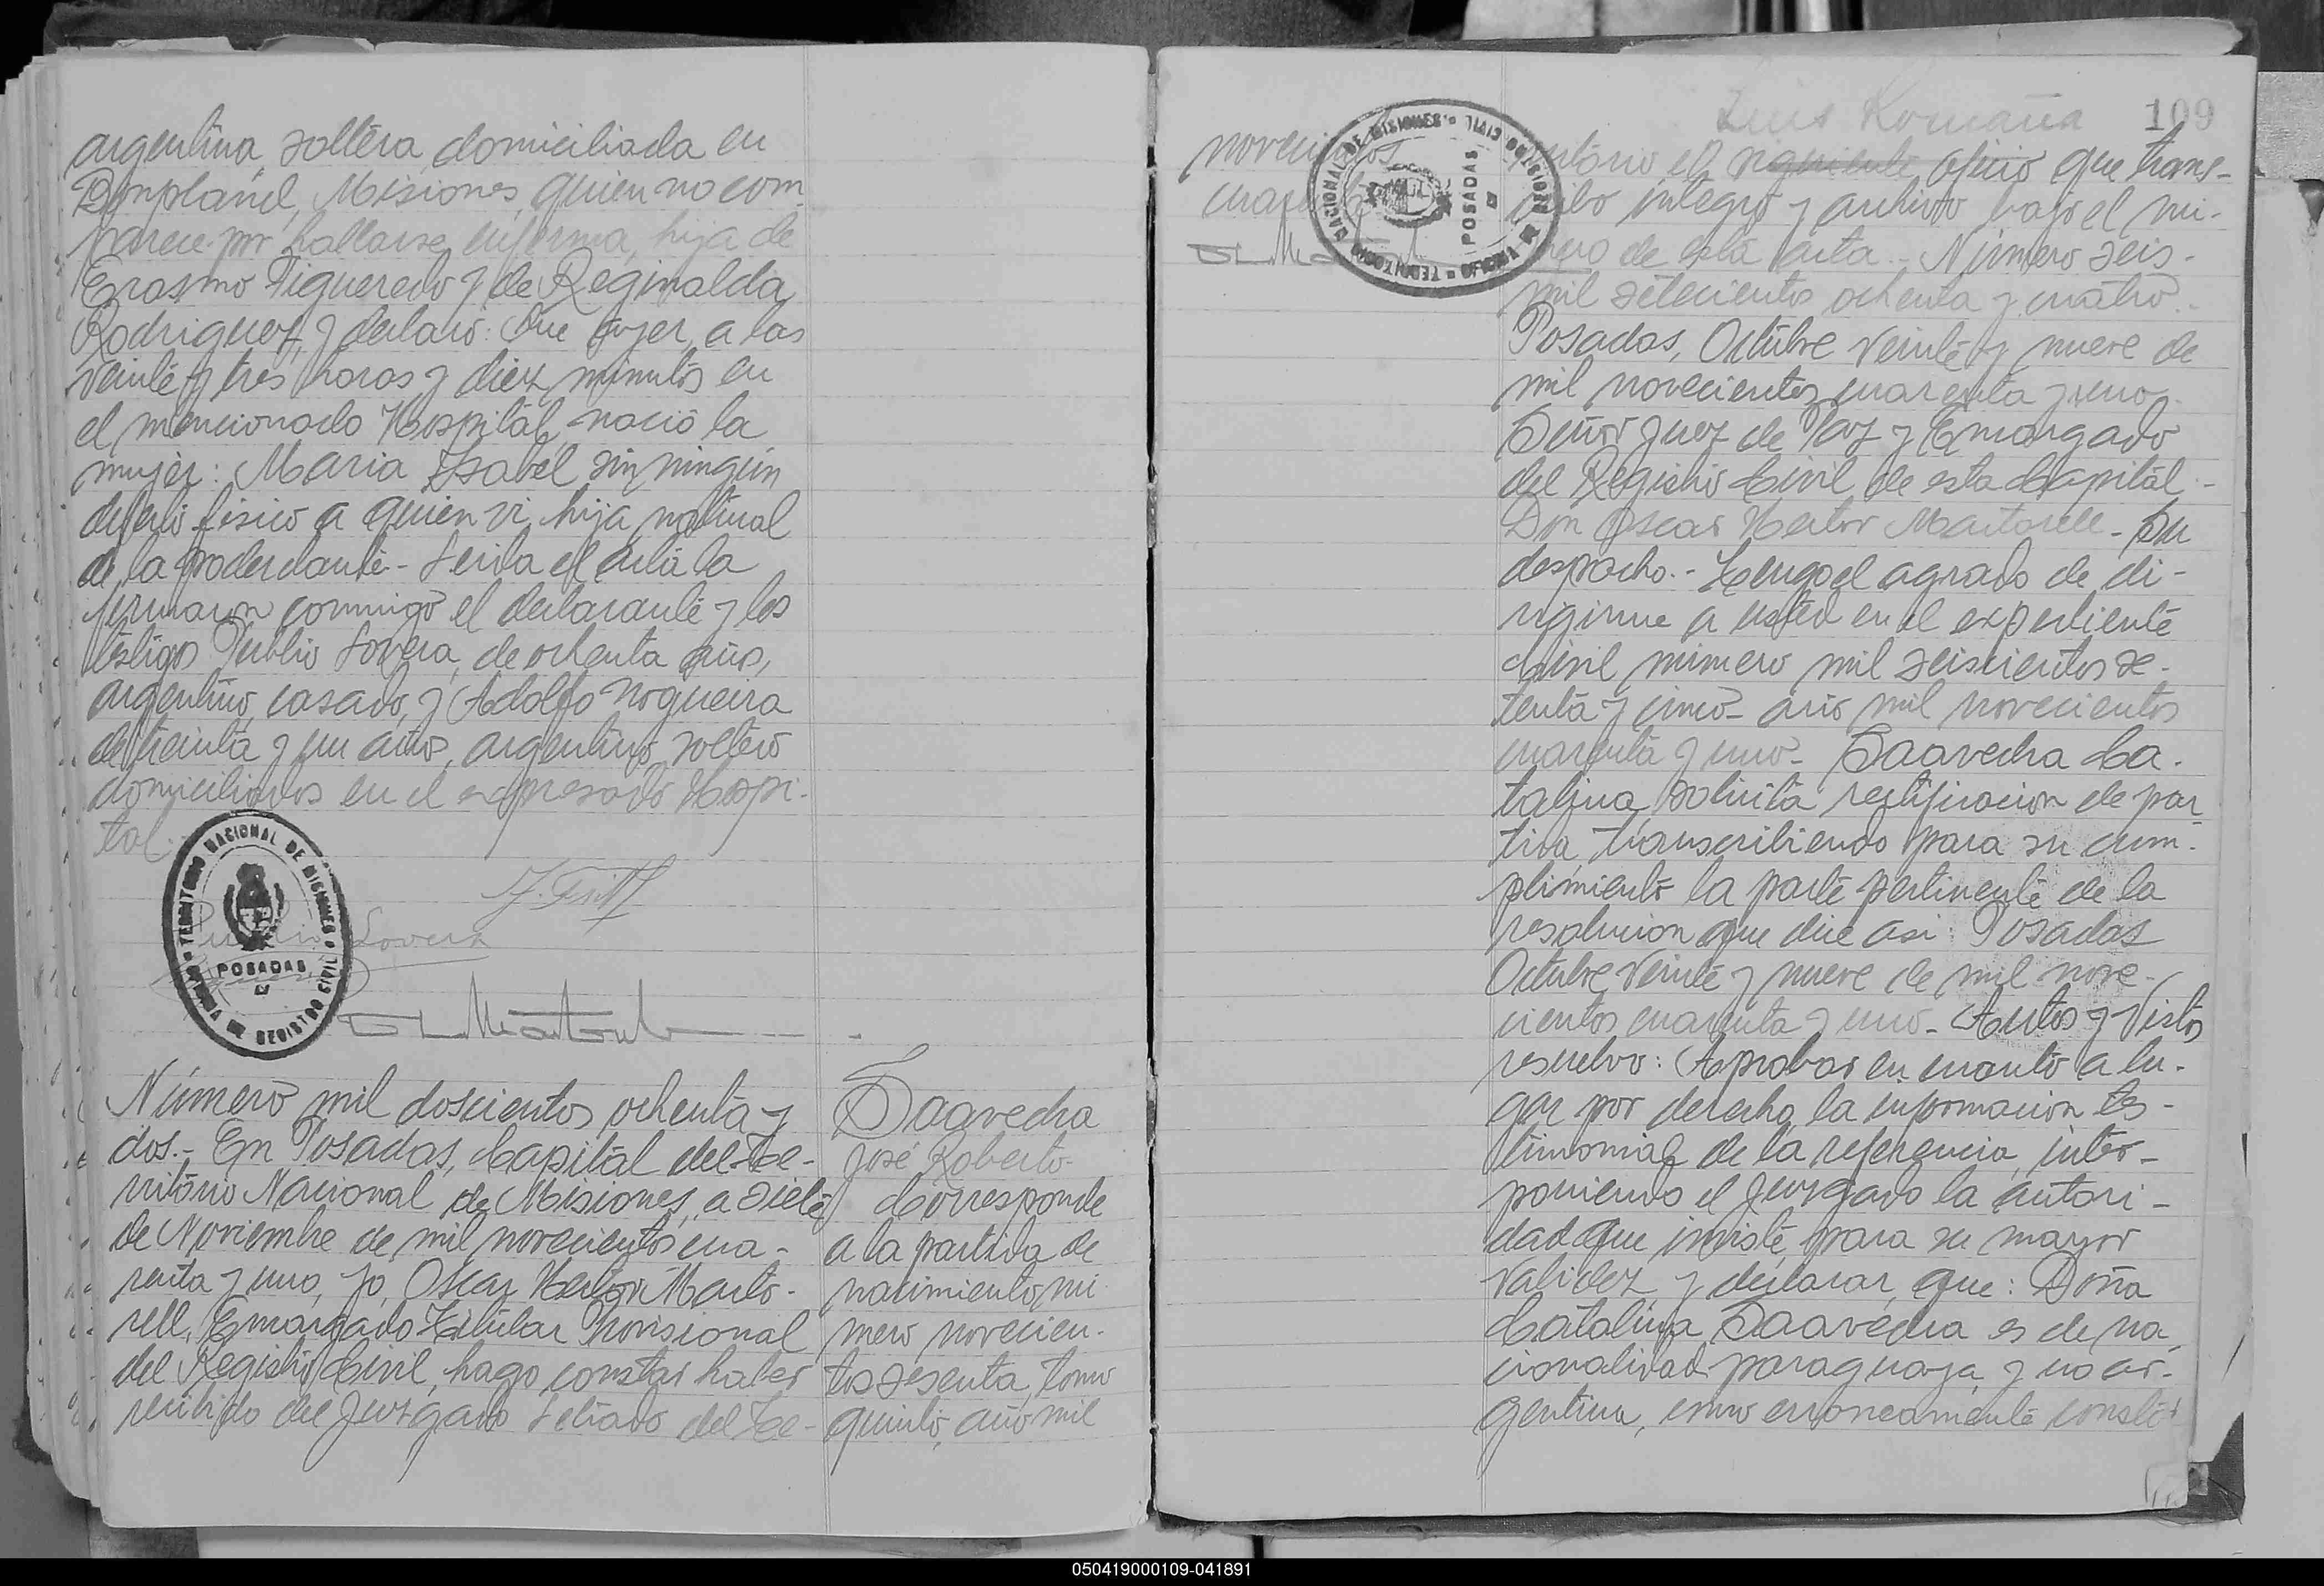 argentina, soltera, domiciliada en
Bonpland, Misiones, quien no com-
parece por hallarse enferma, hija de
Erasmo Figueredo y de Reginalda
Rodriguez, y declaró: Que ayer, a las
veinte y tres horas y diez minutos en
el mencionado Hospital, nació la
mujer: Maria Isabel sin ningún
defecto físico a quien vi, hija natural
de la poderdante - Leida el acta la
firmaron conmigo el declarante y los
testigos Publio Lovera, de ochenta años,
argentino, casado, y Adolfo Nogueira
de treinta y un años, argentino, soltero
domiciliados en el expresado Hospi-
tal.
TERRITORIO NACIONAL DE MISIONES
POSADAS
OFICINA DE REGISTRO CIVIL
Publio Lovera
Número mil doscientos ochenta y
dos.- En Posadas, Capital del Te-
rritorio Nacional de Misiones, a siete
de Noviembre de mil novecientos cua-
renta y uno, yo, Oscar Hector Marto-
rell, Encargado Titular Provisional
del Registro Civil, hago constar haber
recibido del Juzgado Letrado del Te-
Saavedra
José Roberto-
Corresponde
a la partida de
nacimiento nú
mero novecien-
tos sesenta, tomo
quinto, año mil
Luis Romaña
109
novecientos
TERRITORIO NACIONAL DE MISIONES
POSADAS
OFICINA DE REGISTRO CIVIL
rritorio, el siguiente oficio que trans-
cribo integro y archivo bajo el nú-
mero de esta acta.- Número seis-
mil setecientos ochenta y cuatro.-
Posadas, Octubre veinte y nueve de
mil novecientos cuarenta y uno.-
Señor Juez de Paz y Encargado
del Registro Civil de esta Capital -
Don Oscar Hector Martorell - Su
despacho.- Tengo el agrado de di-
rigirme a usted en el expediente
Civil número mil seiscientos se-
tenta y cinco - año mil novecientos
cuarenta y uno - Saavedra Ca-
talina, solicita rectificacion de par
tida, transcribiendo para su cum-
plimiento la parte pertinente de la
resolucion que dice asi: Posadas
Octubre, veinte y nueve de mil nove-
cientos cuarenta y uno - Autos y Vistos
resuelvo: Aprobar en cuanto a lu-
gar por derecho, la informacion tes-
timonial de la referencia, inter-
poniendo el Juzgado la autori-
dad que inviste, para su mayor
validez y declarar, que: Doña
Catalina Saavedra es de na
cionalidad paraguaya, y no ar-
gentina, como erroneamente consta